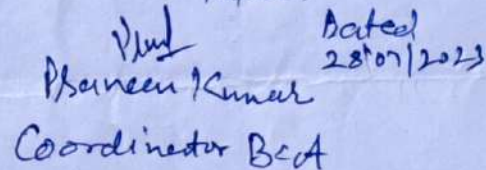 Dated
28/07/2023
Praveen Kumar
Coordinator BCA